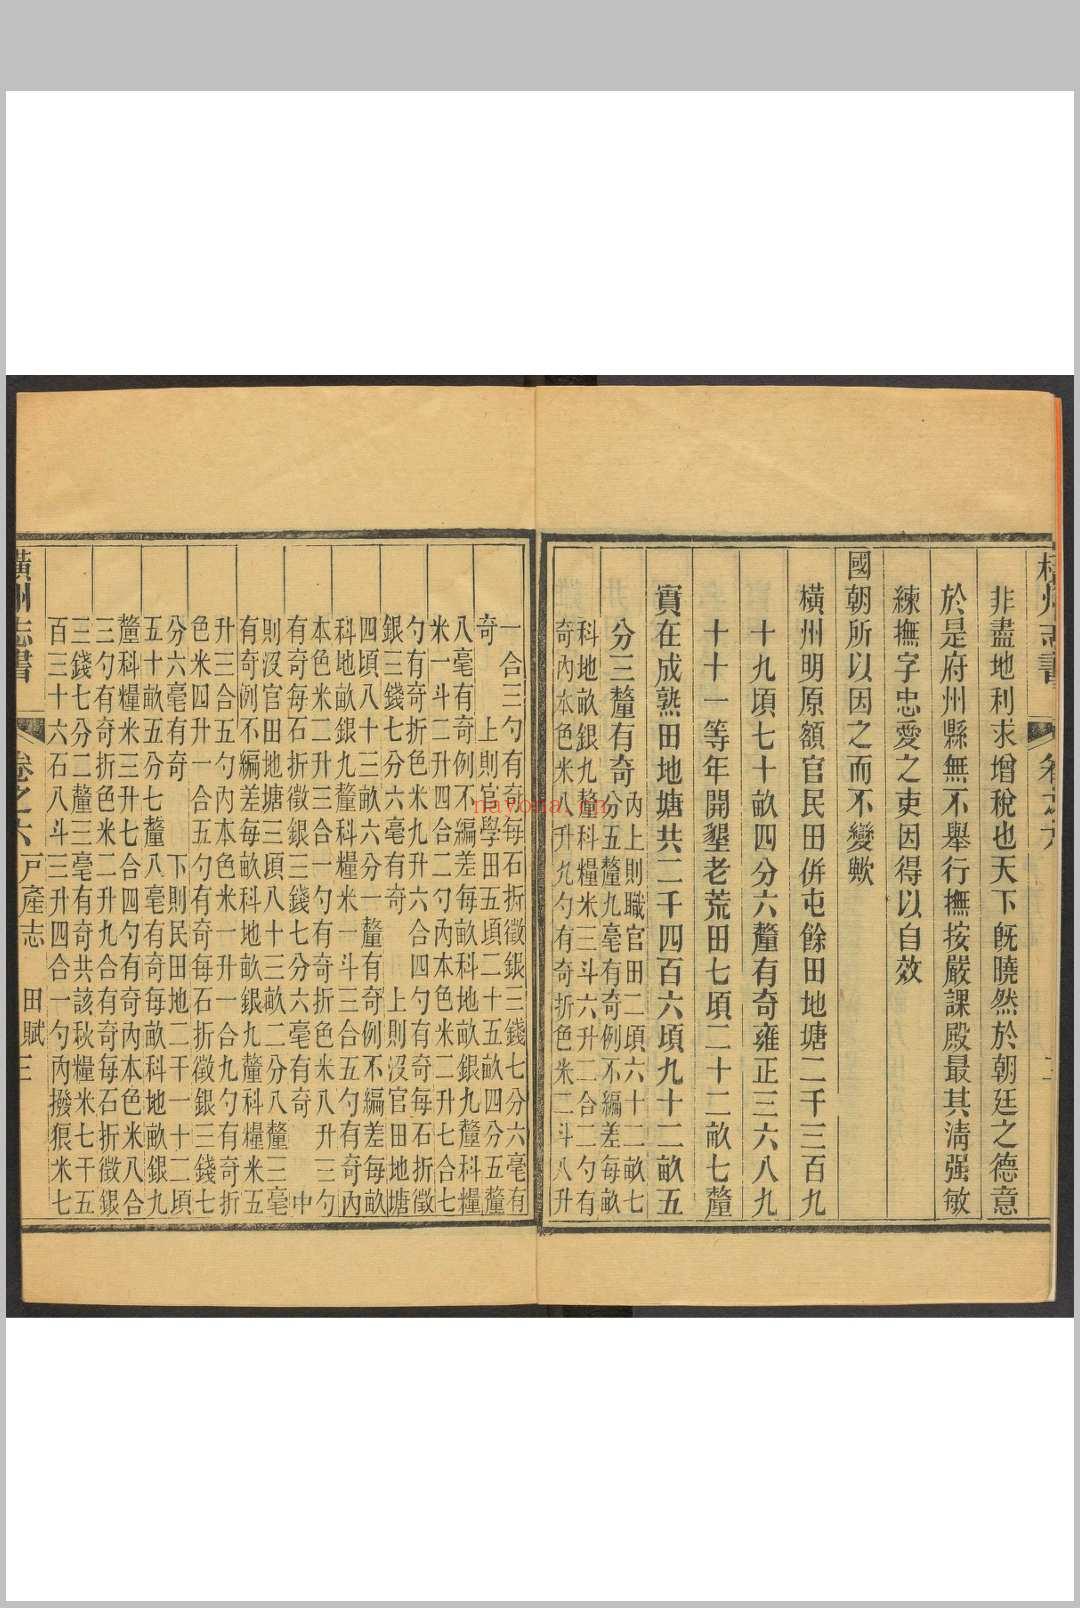 非盡地利求增稅也天下旣曉然於朝廷之德意
於是府州縣無不舉行撫按嚴課殿最其淸强敏
練撫字忠愛之吏因得以自效
國朝所以因之而不變歟
橫州明原額官民田併屯餘田地塘二千三百九
十九頃七十畝四分六釐有奇雍正三六八九
十十一等年開墾老荒田七頃二十二畝七釐
實在成熟田地塘共二千四百六頃九十二畝五
分三釐有奇
內上則職官田二頃六十二畝七
分五釐九毫有奇例不編差每畝
科地畝銀九釐科糧米三斗六升二合二勺有
奇內本色米八升九勺有奇折色米二斗八升
一合三勺有奇每石折徵銀三錢七分六毫有
奇　上則官學田五頃二十五畝四分五釐
八毫有奇例不編差每畝科地畝銀九釐科糧
米一斗二升四合二勺內本色米二升七合七
勺有奇折色米九升六合四勺有奇每石折徵
銀三錢七分六毫有奇　上則沒官田地塘
四頃八十三畝六分一釐有奇例不編差每畝
科地畝銀九釐科糧米一斗三合五勺有奇內
本色米二升三合一勺有奇折色米八升三勺
有奇每石折徵銀三錢七分六毫有奇　中
則沒官田地塘三頃八十三畝二分八釐三毫
有奇例不編差每畝科地畝銀九釐科糧米五
升三合五勺內本色米一升一合九勺有奇折
色米四升一合五勺有奇每石折徵銀三錢七
分六毫有奇　下則民田地二千一十二頃
五十畝五分七釐八毫有奇每畝科地畝銀九
釐科糧米三升七合四勺有奇內本色米八合
三勺有奇折色米二升九合有奇每石折徵銀
三錢七分二釐三毫有奇共該秋糧米七千五
百三十六石八斗三升四合一勺內撥狼米七
橫州志書　卷之六　戶產志　田賦　三